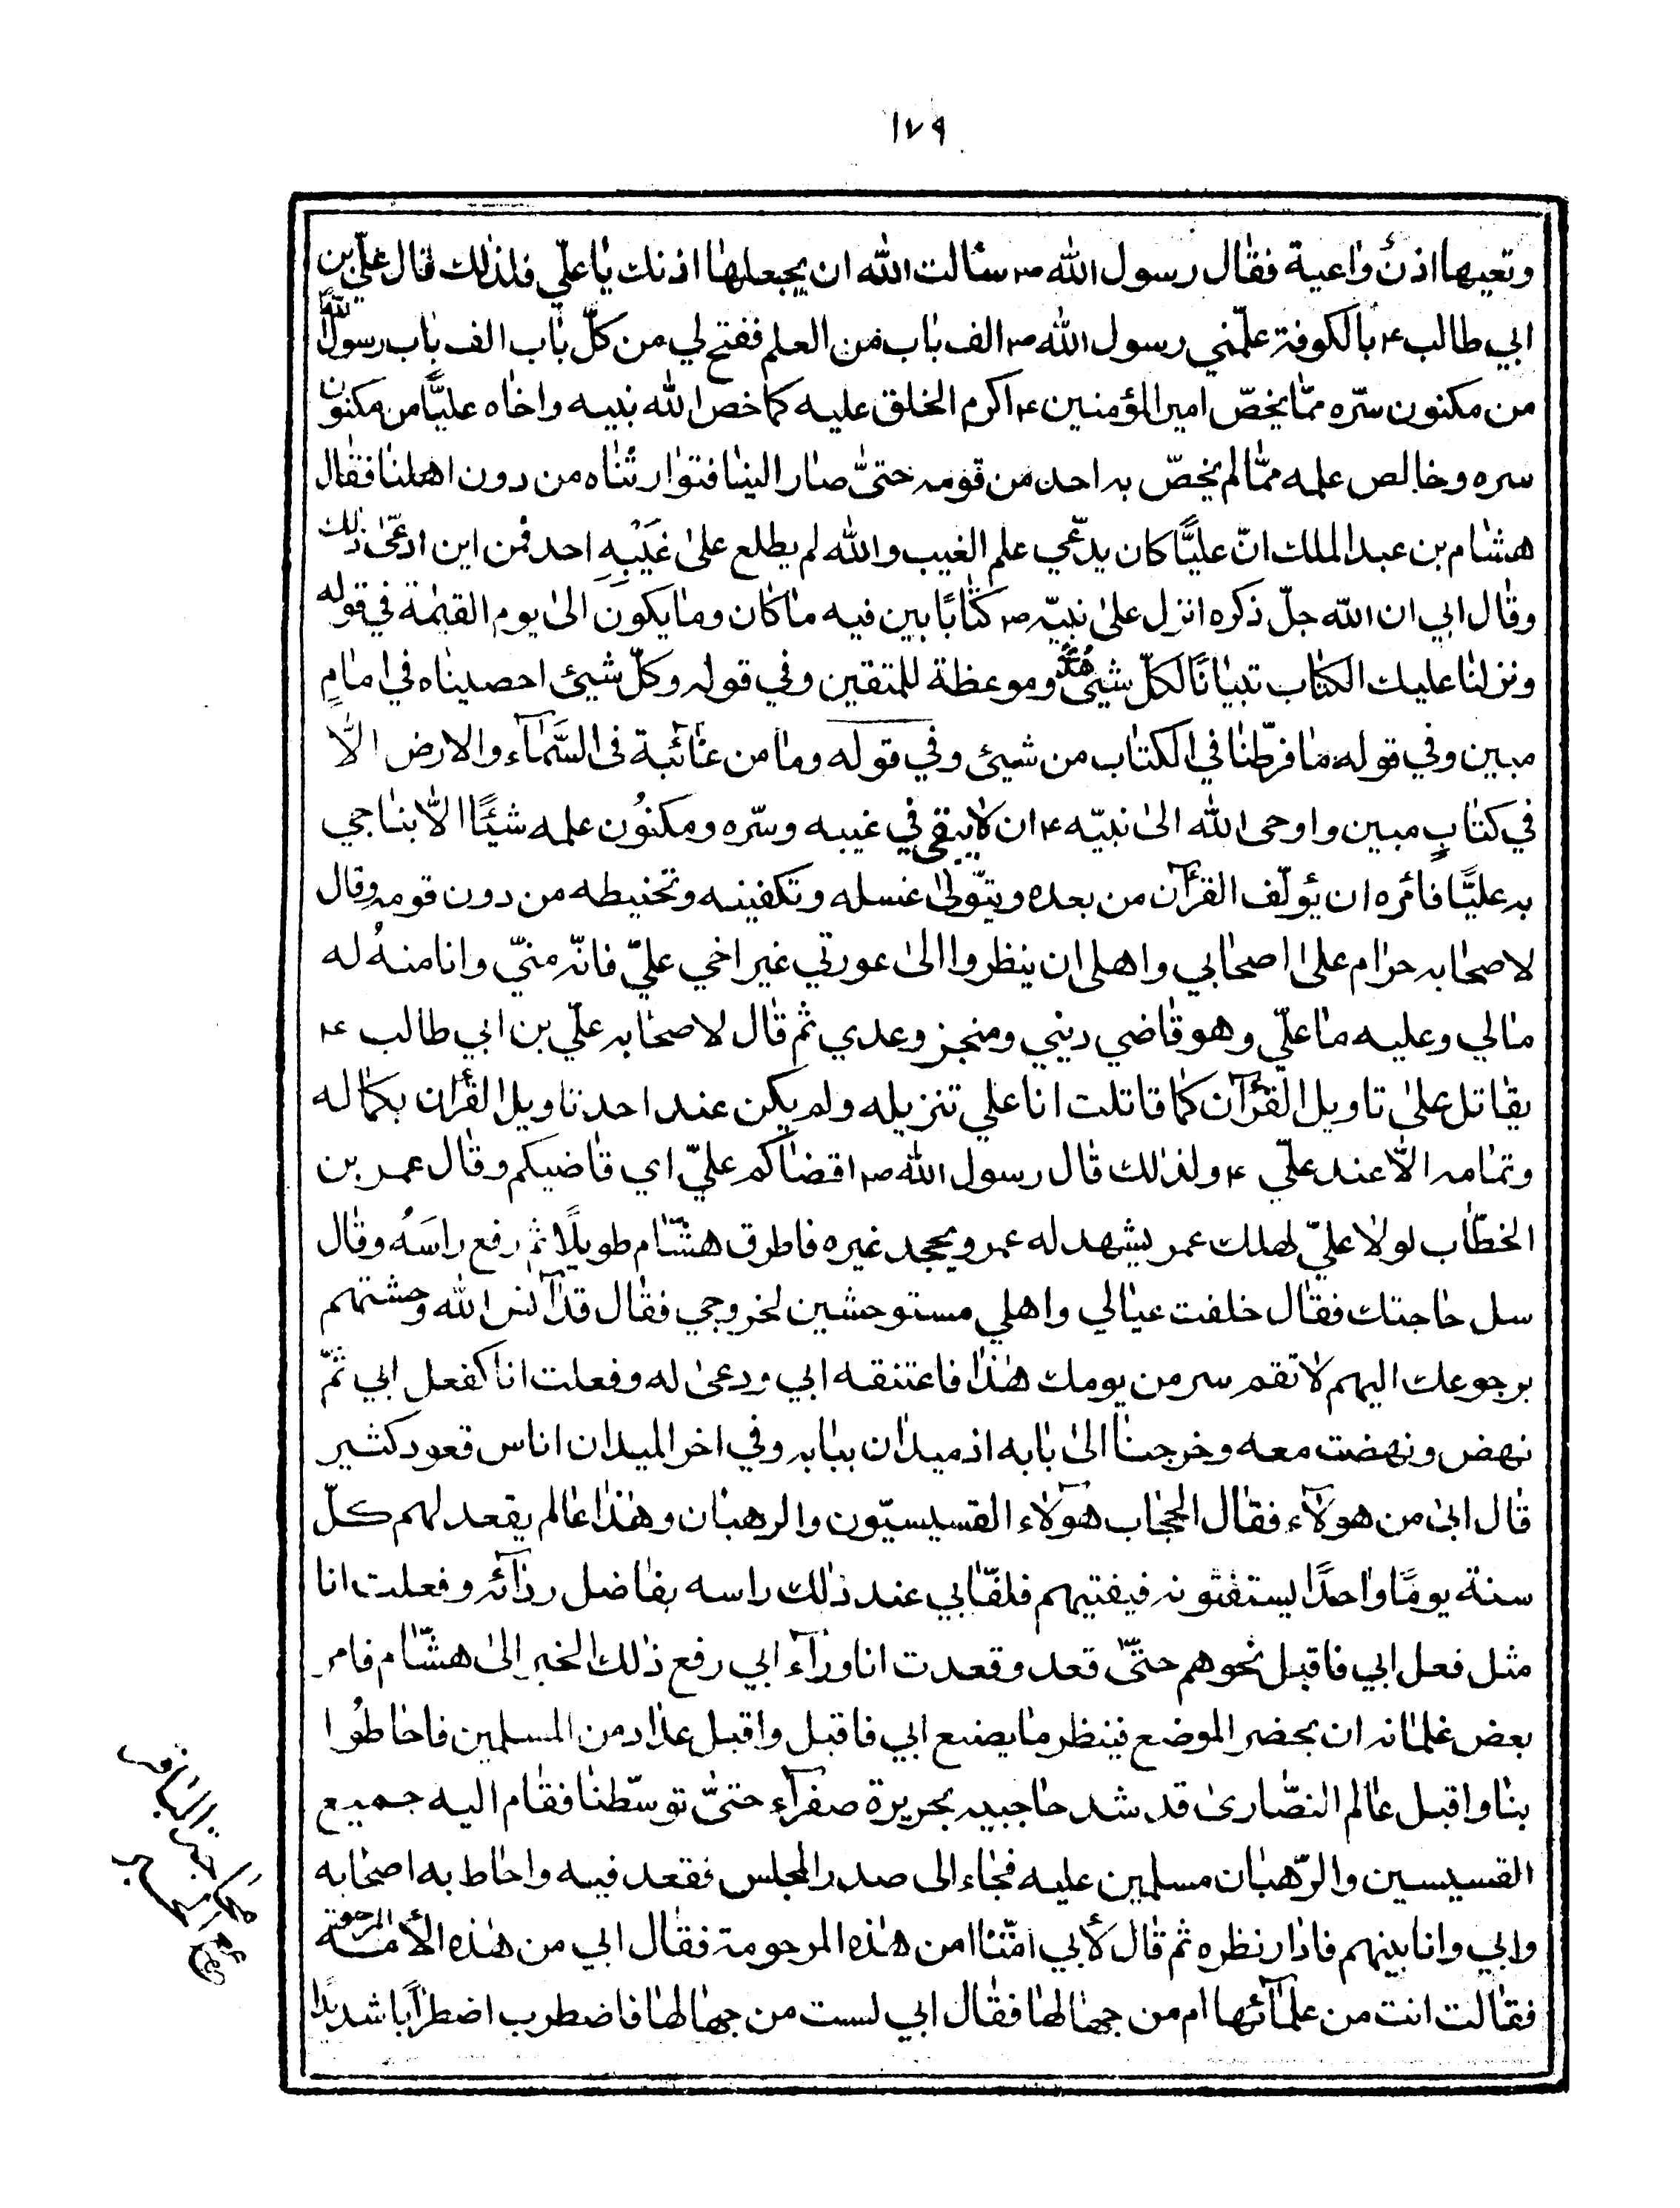 ١٧٩
وتعيها اذنٌ وٰاعية فقٰال رسول الله ص سئالت الله ان يجعلهٰا اذنك يٰا علّي فلذٰلك قٰال علّي بن
ابي طالب ع بالكوفة علّمني رسول الله ص الف بٰاب من العلم ففتح لي من كلّ بٰاب الف بٰاب رسول الله
من مكنون سرّه ممّا يخصّ امير المؤمنين ع اكرم الخلق عليه كما خصّ الله نبيه واخٰاه عليًّا من مكنون
سره وخالص علمه ممّا لم يخصّ به احد من قومه حتىّٰ صٰار الينٰا فتوٰارثنٰاه من دون اهلنٰا فقٰال
هشٰام بن عبد الملك انّ عليًّا كان يدّعي علم الغيب والله لم يطلع علىٰ غَيْبِهِ احد فمن اين ادعّىٰ ذٰلك
وقٰال ابي ان الله جلّ ذكره انزل علىٰ نبيّه ص كتٰابًا بين فيه مٰا كٰان ومٰا يكون الىٰ يوم القيٰمة في قوله
ونزلنٰا عليك الكتٰاب تبيٰانًا لكلّ شيئ هُدًى وموعظة للمتقين وفي قوله وكلّ شيئ احصينٰاه في امٰامٍ
مبين وفي قوله مٰا فرّطنٰا في الكتٰاب من شيئ وفي قوله ومٰا من غٰائبة فى السَّمٰآء والارض الّٰا
في كتٰابٍ مبين واوحى الله الىٰ نبيّه ع ان لٰا يبقى في غيبه وسرّه ومكنوُن علمه شيئًا الّٰا ينٰاجي
به عليًّا فامُره ان يؤلّف القرآن من بعده ويتّولىٰ غسله وتكفينه وتحنيطه من دون قومه وقٰال
لاصحٰابه حرٰام علىٰ اصحٰابي واهلي ان ينظروا الىٰ عورتي غير اخي عليّ فانّه منيّ وانا منهُ له
مٰا لي وعليه مٰا علّي وهو قٰاضي ديني ومنجز وعدي ثم قٰال لاصحٰابه علّي بن ابي طالب ع
يقٰاتل علىٰ تاويل القرآن كمٰا قاتلت انا علي تنزيله ولم يكن عند احد تاويل القرٰان بكمٰاله
وتمٰامه الّٰا عند علّي ع ولذٰلك قٰال رسول الله ص اقضٰاكم عليّ اي قٰاضيكم وقٰال عمر بن
الخطّٰاب لولٰا عليّ لهلك عمر يشهد له عمر ويجحد غيره فاطرق هشّٰام طويلًا ثم رفع رٰاسَهُ وقٰال
سل حٰاجتك فقٰال خلفت عيٰالي واهلي مستوحشين لخروجي فقٰال قد آنس الله وحشتهم
برجوعك اليهم لٰا تقم سر من يومك هٰذٰا فاعتنقه ابي ودعىٰ له وفعلت انا كفعل ابي ثمّ
نهض ونهضت معه وخرجنٰا الىٰ بٰابه اذ ميدٰان ببٰابه وفي اخر الميدٰان اناس قعود كثير
قٰال ابىٰ من هولٰآء فقٰال الحجّٰاب هولٰآء القسيسيّون والرهبٰان وهٰذٰا عٰالم يقعد لهم كلّ
سنة يومًا وٰاحدًا يستفتونه فيفتيهم فلفّٰ ابي عند ذٰلك راسه بفٰاضل ردٰآئه وفعلت انا
مثل فعل ابي فاقبل نحوهم حتىّٰ قعد وقعدت انا ورٰآء ابي رفع ذٰلك الخبر الىٰ هشّٰام فامر
بعض غلمٰانه ان يحضر الموضع فينظر مٰا يصنع ابي فاقبل واقبل عدٰاد من المسلمين فاحٰاطوُا
بنٰا واقبل عٰالم النصّٰارىٰ قد شد حٰاجبيه بحريرة صفرٰآء حتىّٰ توسّطنٰا فقٰام اليه جميع
القسيسين والرّهبٰان مسلمين عليه فجٰاء الى صدر المجلس فقعد فيه واحٰاط به اصحٰابه
وابي وانا بينهم فادٰار نظره ثم قٰال لأبي امّنٰا ام من هٰذه المرحومة فقٰال ابي من هٰذه الأمّة المرحومة
فقٰالت انت من علمٰآئها ام من جهٰالهٰا فقٰال ابي لست من جهٰالهٰا فاضطرب اضطرٰابًا شديدًا